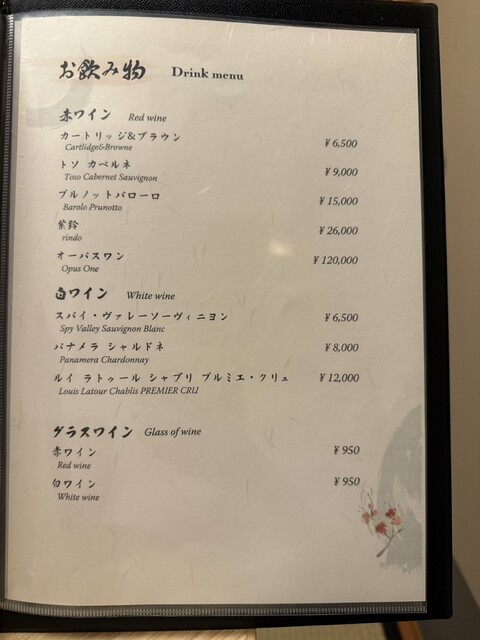 お飲み物 Drink menu
赤ワイン Red wine
カートリッジ&ブラウン ¥6,500
Cartlidge&Browne
トソ カベルネ ¥9,000
Toso Cabernet Sauvignon
プルノットバローロ ¥15,000
Barolo Prunotto
紫鈴 ¥26,000
rindo
オーパスワン ¥120,000
Opus One
白ワイン White wine
スパイ・ヴァレーソーヴィニヨン ¥6,500
Spy Valley Sauvignon Blanc
パナメラ シャルドネ ¥8,000
Panamera Chardonnay
ルイ ラトゥール シャブリ プルミエ・クリュ ¥12,000
Louis Latour Chablis PREMIER CRU
グラスワイン Glass of wine
赤ワイン ¥950
Red wine
白ワイン ¥950
White wine